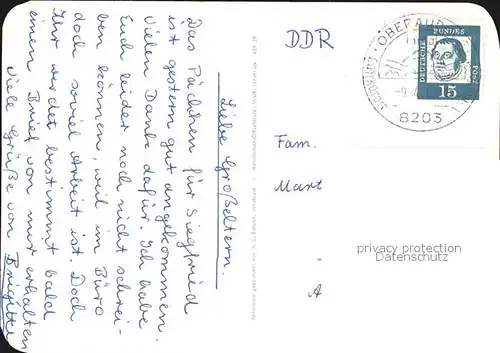 Liebe Großeltern.
Das Päckchen für Siegfried
ist gestern gut angekommen.
Vielen Dank dafür. Ich habe
Euch leider noch nicht schrei-
ben können, weil im Büro
doch soviel Arbeit ist. Doch
Ihr werdet bestimmt bald
einen Brief von mir erhalten
Viele Grüße von Brigitte
DDR
OBERAUD
8203
DEUTSCHE
BUNDES
POST
15
Fam.
Mart
A
privacy protection
Datenschutz